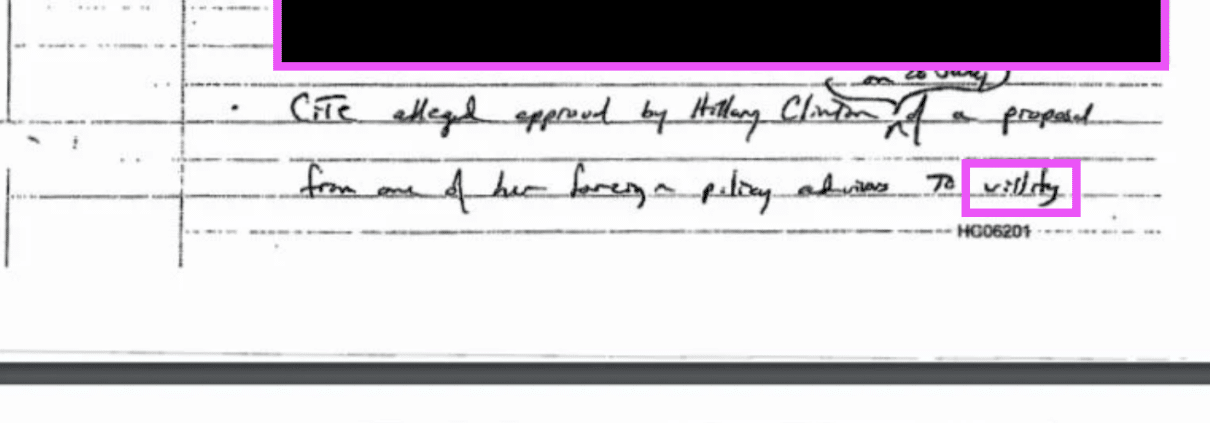 on 26 July
• CITE alleged approval by Hillary Clinton of a proposal
from one of her foreign policy advisors to vilify
HC06201